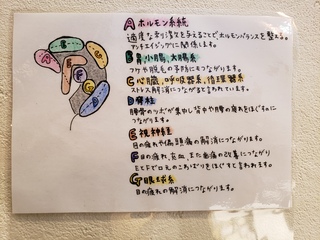 A ホルモン系統
適度な刺激を与えることでホルモンバランスを整える。
アンチエイジングに関係します。
B 胃、小腸、大腸系
フケや脱毛の予防にもつながります。
C 心臓、呼吸器系、循環器系
ストレス解消につながると言われています。
D 脊柱
腰骨のツボが集やし背中や腰の疲れをほぐすのに
つながります。
E 視神経
目の疲れや偏頭痛の解消につながります。
F 目の疲れ、充血、また血痛の改善につながり
EとFで目元のこわばりをほぐすと言われます。
G 眼球系
目の疲れの解消につながります。